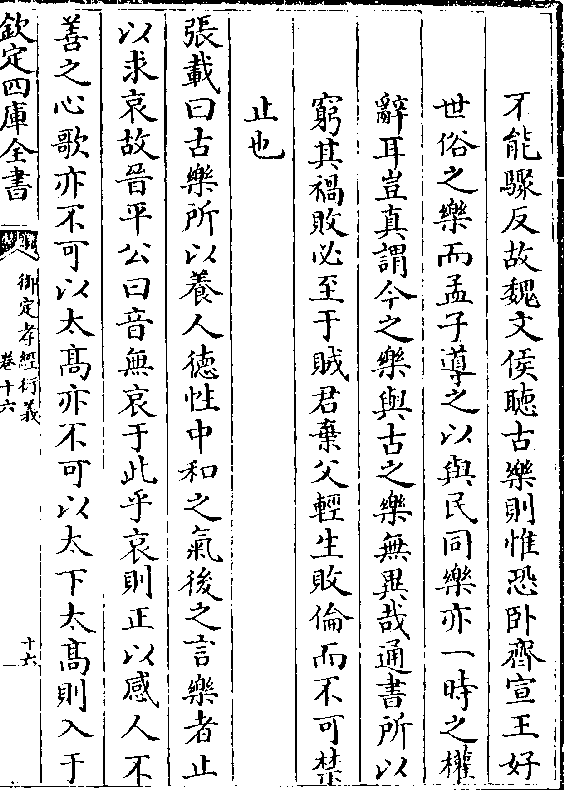 才能驟反故魏文侯聴古樂則惟恐卧齊宣王好
世俗之樂而孟子導之以與民同樂亦一時之權
辭耳豈真謂今之樂與古之樂無異哉通書所以
窮其禍敗必至于賊君棄父輕生敗倫而不可禁
止也
張載曰古樂所以養人徳性中和之氣後之言樂者止
以求哀故晉平公曰音無哀于此乎哀則正以感人不
善之心歌亦不可以太髙亦不可以太下太髙則入于
欽定四庫全書
御定孝經衍義
卷十六
十六